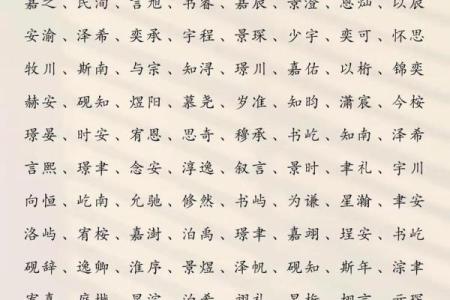 嘉之、民洵、言旭、书睿、嘉辰、景澄、恩灿、以辰
安渝、泽希、奕承、宇程、景琛、少宇、奕可、怀思
牧川、斯南、与宗、知浔、璟川、嘉佑、以桁、锦奕
赫安、砚知、煜阳、慕尧、岁准、知昀、潇宸、今桉
璟晏、时安、宥恩、思奇、穆承、书屹、知南、泽希
言熙、璟聿、念安、淳逸、叙言、景时、聿礼、宇川
向恒、屹南、允驰、修然、书屿、为谦、星瀚、聿安
洛屿、宥桉、嘉澍、泊禹、璟聿、嘉翊、埕安、书屹
砚辞、逸卿、淮序、景煜、泽帆、砚知、斯年、淙聿